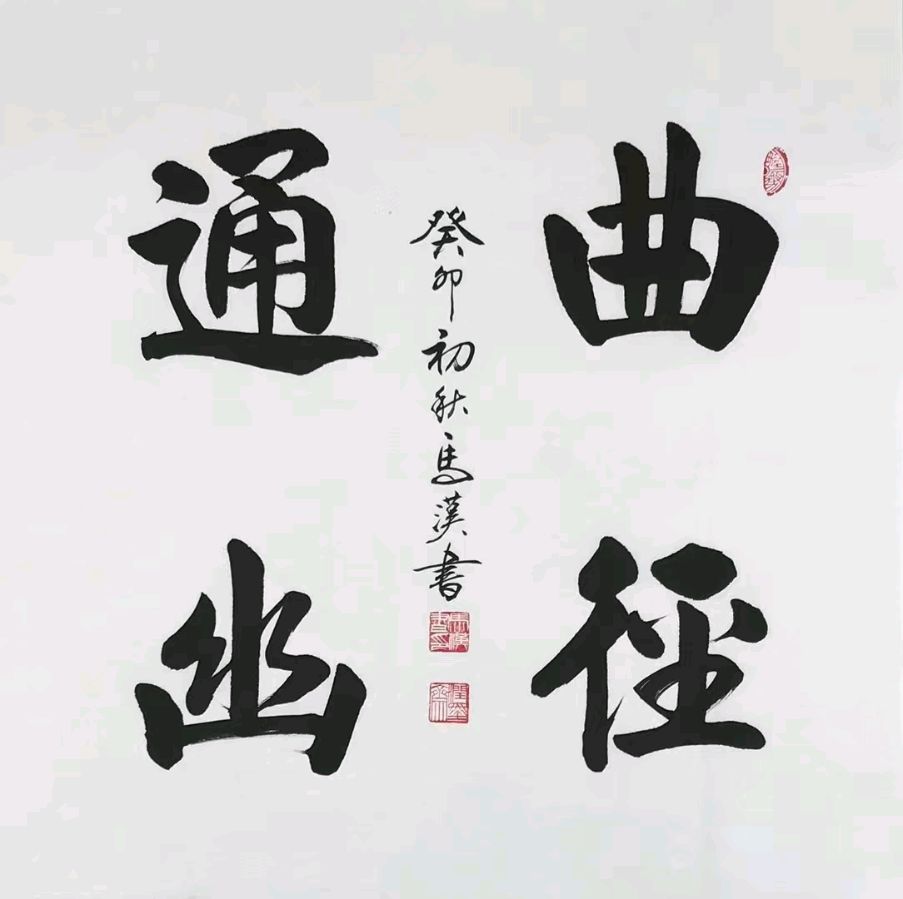 曲徑
通幽
癸卯初秋馬漢書